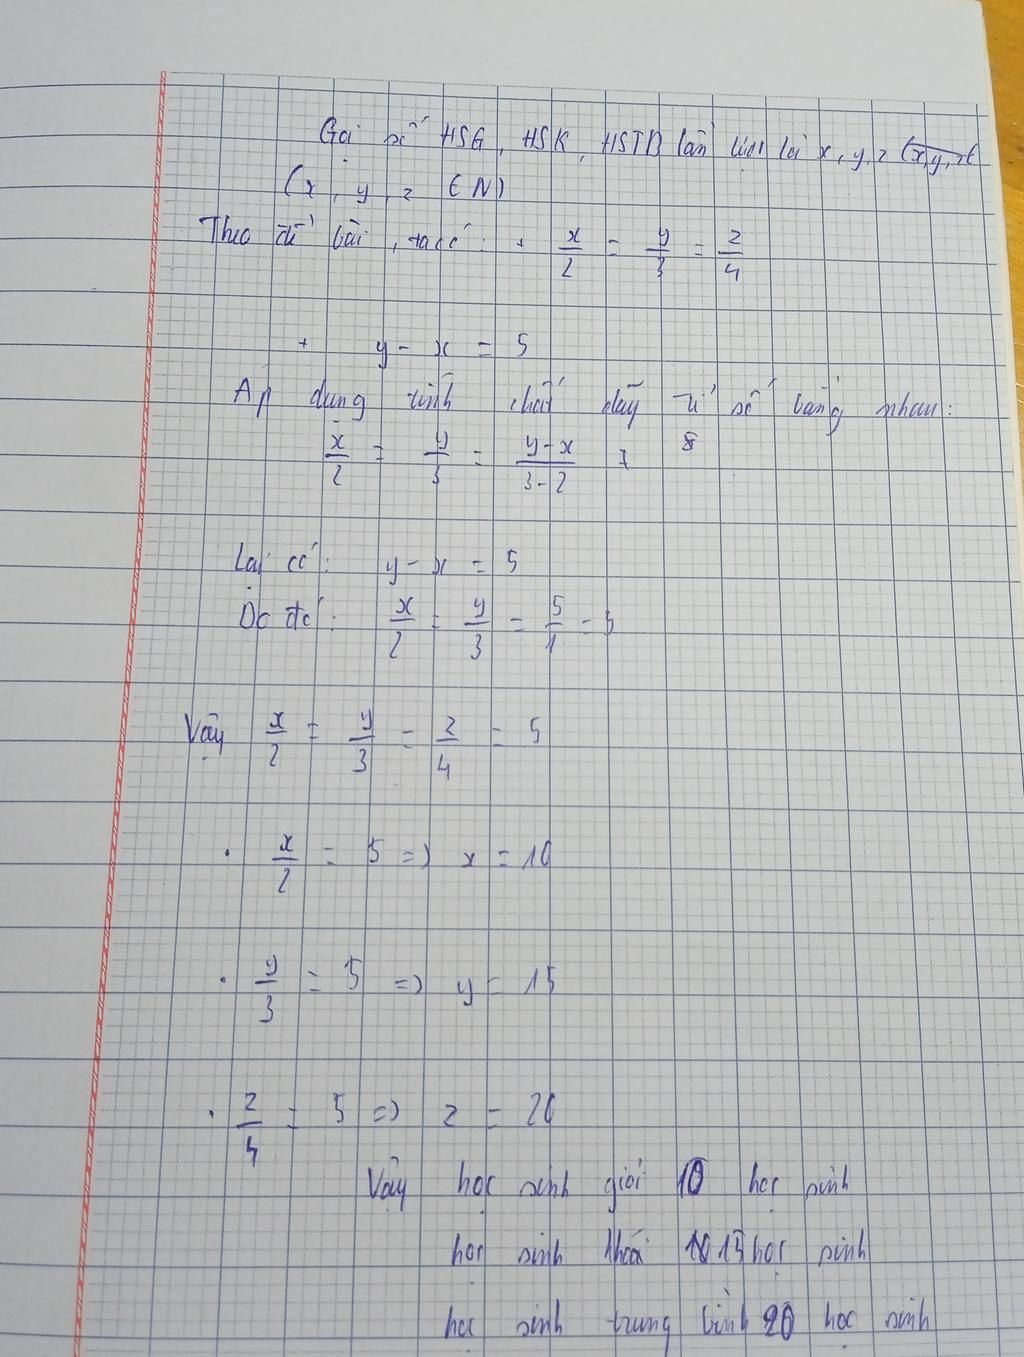 Gọi số HSG, HSK, HSTB lần lượt là x, y, z (x, y, z ∈
(x, y, z ∈ N)
Theo đề bài, ta có: + x/2 = y/3 = z/4
+ y - x = 5
Áp dụng tính chất dãy tỉ số bằng nhau:
x/2 = y/3 = (y-x)/(3-2)
Lại có: y - x = 5
Do đó: x/2 = y/3 = 5/1 = 5
Vậy x/2 = y/3 = z/4 = 5
· x/2 = 5 => x = 10
· y/3 = 5 => y = 15
· z/4 = 5 => z = 20
Vậy học sinh giỏi 10 học sinh
học sinh khá 15 học sinh
học sinh trung bình 20 học sinh